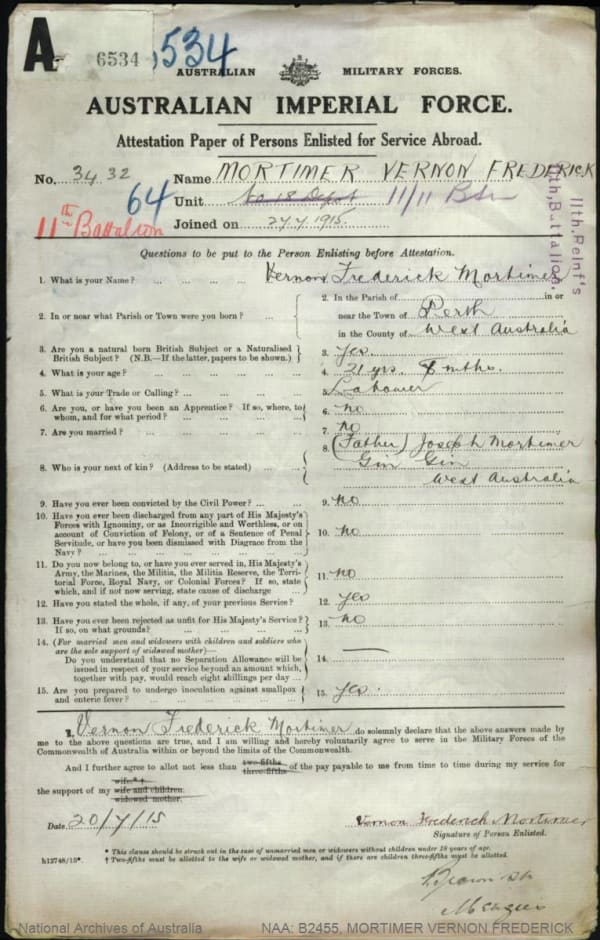 A
6534
534
AUSTRALIAN MILITARY FORCES.
AUSTRALIAN IMPERIAL FORCE.
Attestation Paper of Persons Enlisted for Service Abroad.
No. 3432 Name MORTIMER VERNON FREDERICK
64 Unit No 18 Depot 11/11 Btn
11th Battalion Joined on 1915
11th Reint's
11th, Battalion,
Questions to be put to the Person Enlisting before Attestation.
1. What is your Name? ... ... ... ... Vernon Frederick Mortimer
2. In or near what Parish or Town were you born? ... 2. In the Parish of in or
near the Town of Perth
in the County of West Australia
3. Are you a natural born British Subject or a Naturalised
British Subject? (N.B.—If the latter, papers to be shown.) 3. Yes.
4. What is your age? ... ... ... ... 4. 21 yrs. mths.
5. What is your Trade or Calling? ... ... ... ... 5. Labourer
6. Are you, or have you been an Apprentice? If so, where, to
whom, and for what period? ... ... ... ... 6. no
7. Are you married? ... ... ... ... 7. no
8. Who is your next of kin? (Address to be stated) ... 8. (Father) Joseph Mortimer
Gin Gin
West Australia
9. Have you ever been convicted by the Civil Power? ... ... 9. no
10. Have you ever been discharged from any part of His Majesty's
Forces with Ignominy, or as Incorrigible and Worthless, or on
account of Conviction of Felony, or of a Sentence of Penal
Servitude, or have you been dismissed with Disgrace from the
Navy? ... ... ... ... 10. no
11. Do you now belong to, or have you ever served in, His Majesty's
Army, the Marines, the Militia, the Militia Reserve, the Terri-
torial Force, Royal Navy, or Colonial Forces? If so, state
which, and if not now serving, state cause of discharge 11. no
12. Have you stated the whole, if any, of your previous Service? 12. yes
13. Have you ever been rejected as unfit for His Majesty's Service?
If so, on what grounds? ... ... ... ... 13. no
14. (For married men and widowers with children and soldiers who
are the sole support of widowed mother)—
Do you understand that no Separation Allowance will be
issued in respect of your service beyond an amount which,
together with pay, would reach eight shillings per day ... 14. —
15. Are you prepared to undergo inoculation against smallpox
and enteric fever? ... ... ... ... 15. yes.
I, Vernon Frederick Mortimer do solemnly declare that the above answers made by
me to the above questions are true, and I am willing and hereby voluntarily agree to serve in the Military Forces of the
Commonwealth of Australia within or beyond the limits of the Commonwealth.
And I further agree to allot not less than two-fifths three-fifths of the pay payable to me from time to time during my service for
the support of my wife*† wife and children. widowed mother.
Date 20/7/15 Vernon Frederick Mortimer
Signature of Person Enlisted.
h12748/15*.
* This clause should be struck out in the case of unmarried men or widowers without children under 18 years of age.
† Two-fifths must be allotted to the wife or widowed mother, and if there are children three-fifths must be allotted.
National Archives of Australia NAA: B2455, MORTIMER VERNON FREDERICK